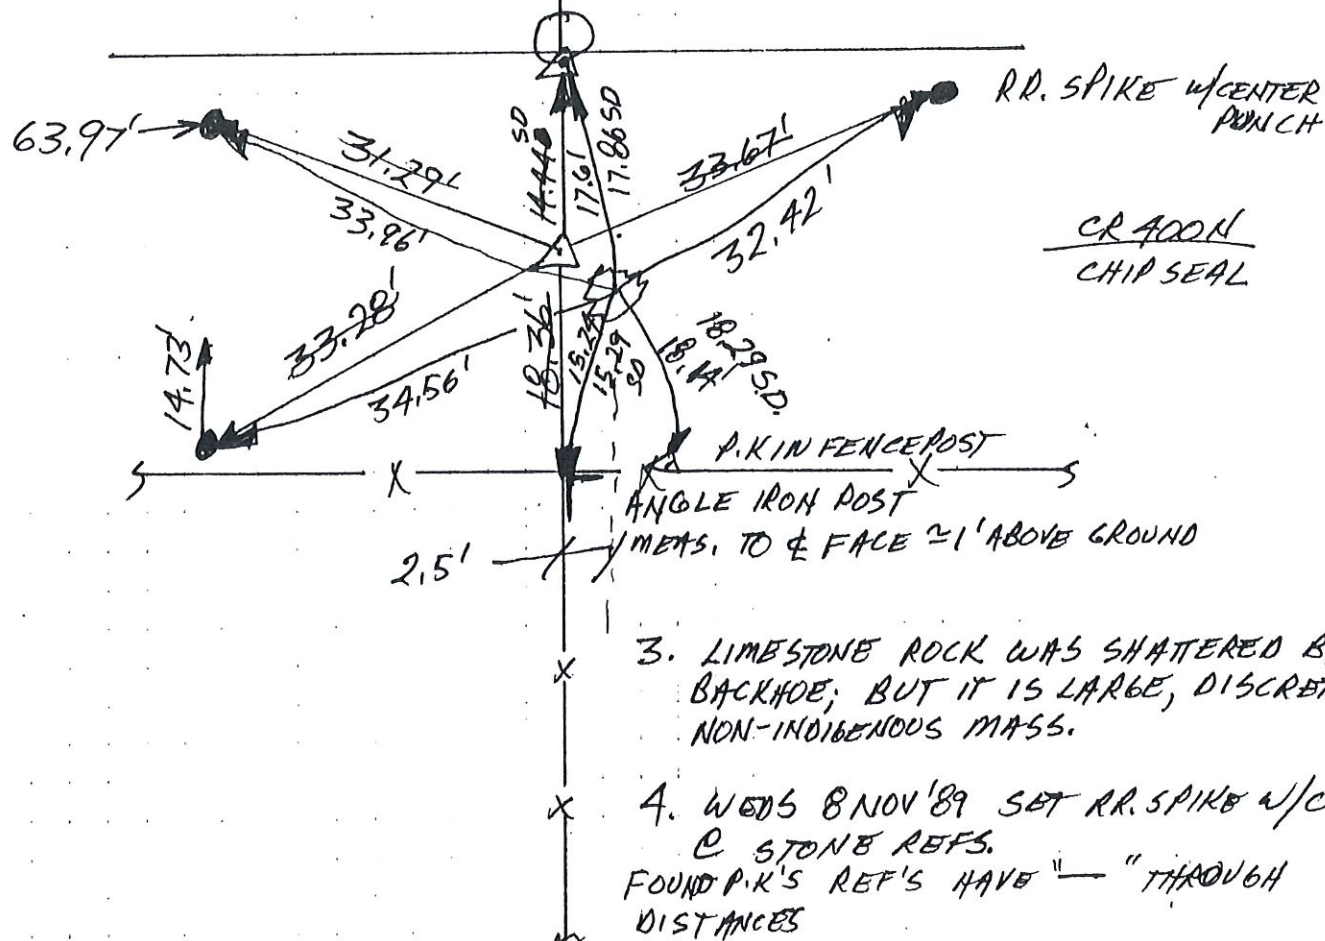 63.97'
RR. SPIKE W/CENTER
PUNCH
31.29'
33.96'
14.44 SD
17.61'
17.86 SD
33.67'
32.42'
CR 400N
CHIP SEAL
14.73'
33.28'
34.56'
18.36'
15.24
15.29
SD
18.29 S.D.
18.14'
P.K IN FENCEPOST
ANGLE IRON POST
MEAS. TO ℄ FACE ≃1' ABOVE GROUND
2.5'
3. LIMESTONE ROCK WAS SHATTERED B
BACKHOE; BUT IT IS LARGE, DISCRET
NON-INDIGENOUS MASS.
4. WEDS 8 NOV '89 SET RR. SPIKE W/C
@ STONE REFS.
FOUND P.K'S REF'S HAVE "—" THROUGH
DISTANCES